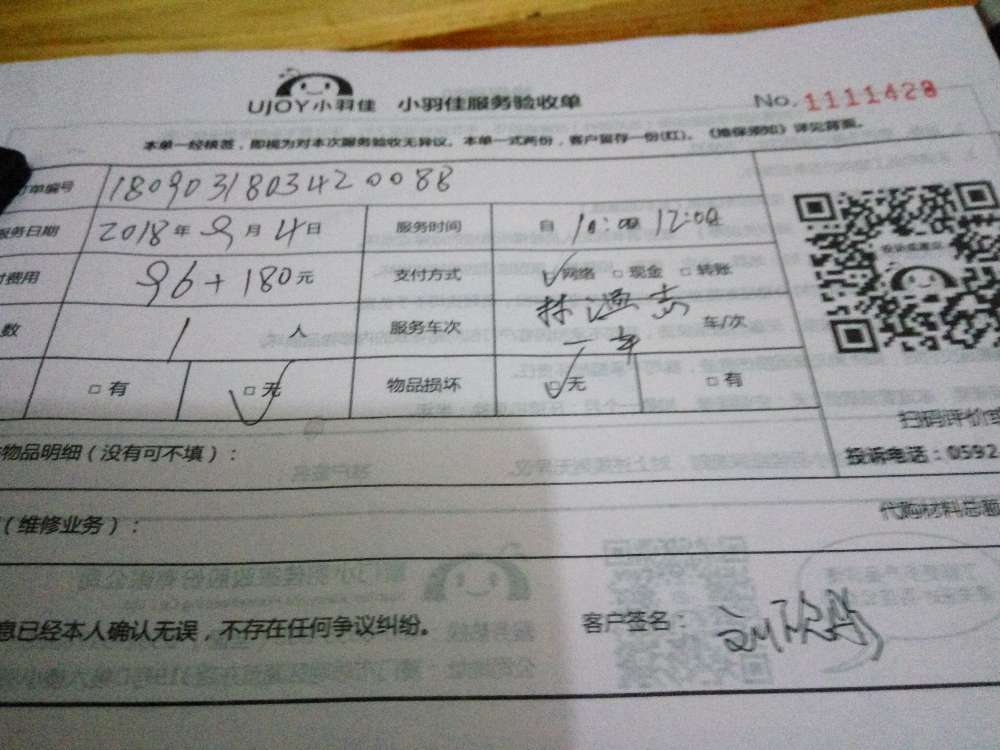 UJOY小羽佳 小羽佳服务验收单 No. 1111428
本单一经核签，即视为对本次服务验收无异议。本单一式两份，客户留存一份(红)。《维保须知》详见背面。
单编号 180903180342008B
服务日期 2018年9月4日 服务时间 自 10:00 12:00
费用 96+180元 支付方式 网络 现金 转账
数 1 人 服务车次 一车 车/次
有 无 物品损坏 无 有
扫码评价
物品明细（没有可不填）：
投诉电话：0592
（维修业务）：
代购材料总额
息已经本人确认无误，不存在任何争议纠纷。 客户签名：